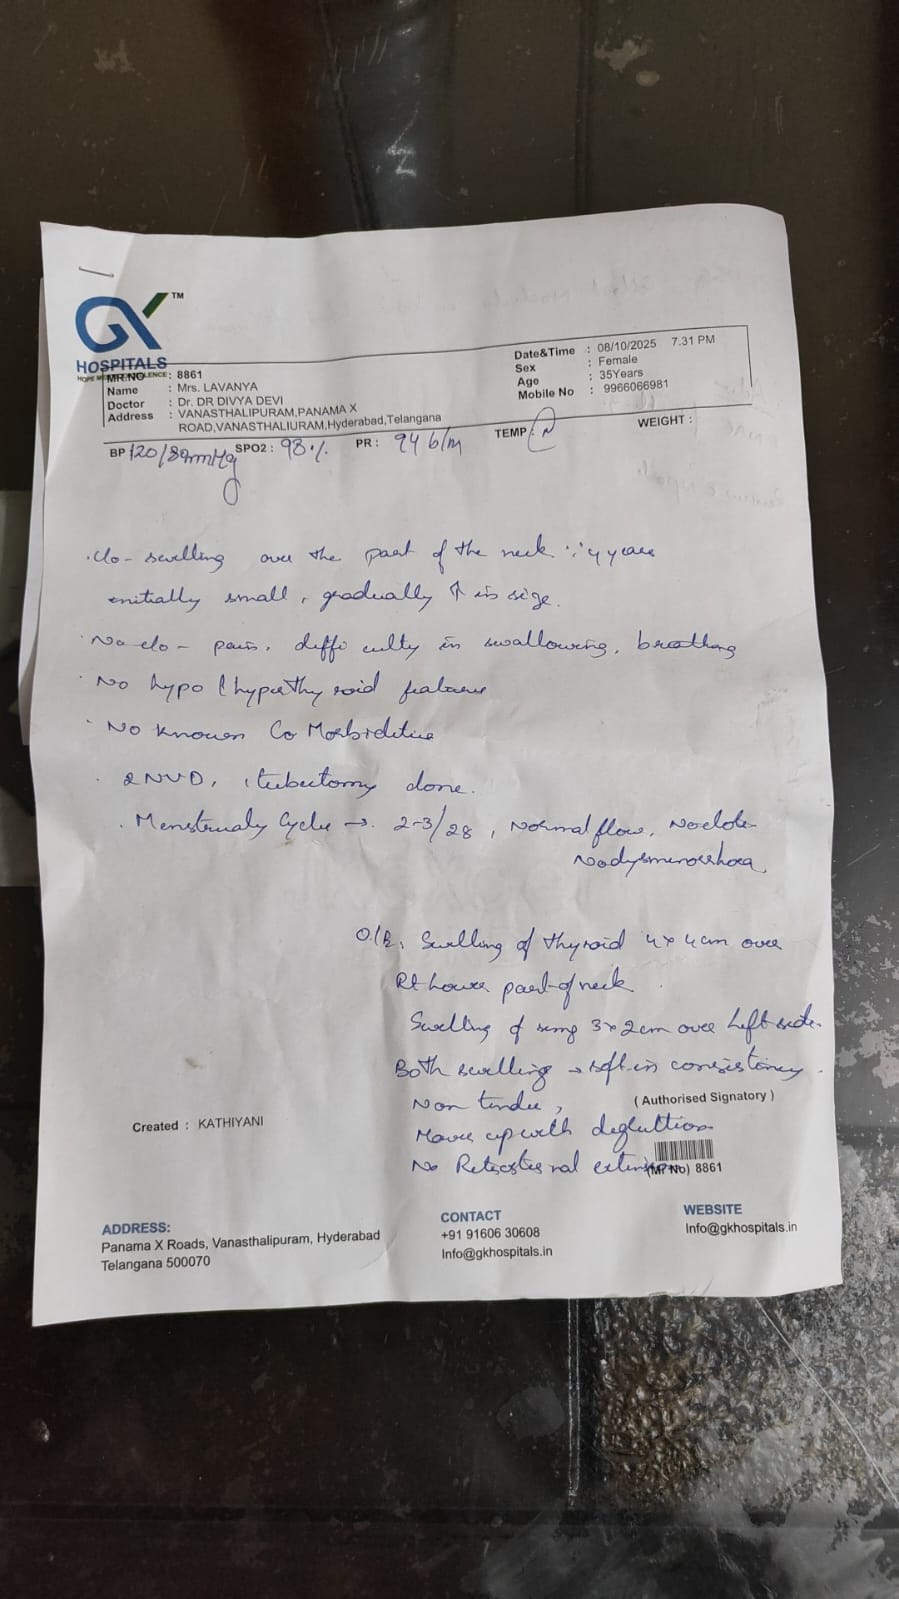 GK TM
HOSPITALS
MR.NO : 8861
Name : Mrs. LAVANYA
Doctor : Dr. DR DIVYA DEVI
Address : VANASTHALIPURAM,PANAMA X
ROAD,VANASTHALIURAM,Hyderabad,Telangana
Date&Time : 08/10/2025 7.31 PM
Sex : Female
Age : 35Years
Mobile No : 9966066981
BP 120/80mmHg SPO2 : 98% PR : 94 b/m TEMP : N WEIGHT :
. C/o - swelling over the part of the neck : 4 years
initially small, gradually ↑ in size.
. No c/o - pain, difficulty in swallowing, breathing
. No hypo / hyperthyroid features
. No known Co Morbidities
. 2NVD, tubectomy done.
. Menstrualy Cycle → 2-3/28, Normal flow, No clots
No dysmenorrhoea,
O/E, Swelling of thyroid 4 x 4cm over
Rt lower part of neck
Swelling of 3 x 2cm over left side.
Both swelling → soft in consistency.
Non tender,
Moves up with deglution
No Retrosternal extension
Created : KATHIYANI
( Authorised Signatory )
(Mr No) 8861
ADDRESS:
Panama X Roads, Vanasthalipuram, Hyderabad
Telangana 500070
CONTACT
+91 91606 30608
Info@gkhospitals.in
WEBSITE
Info@gkhospitals.in